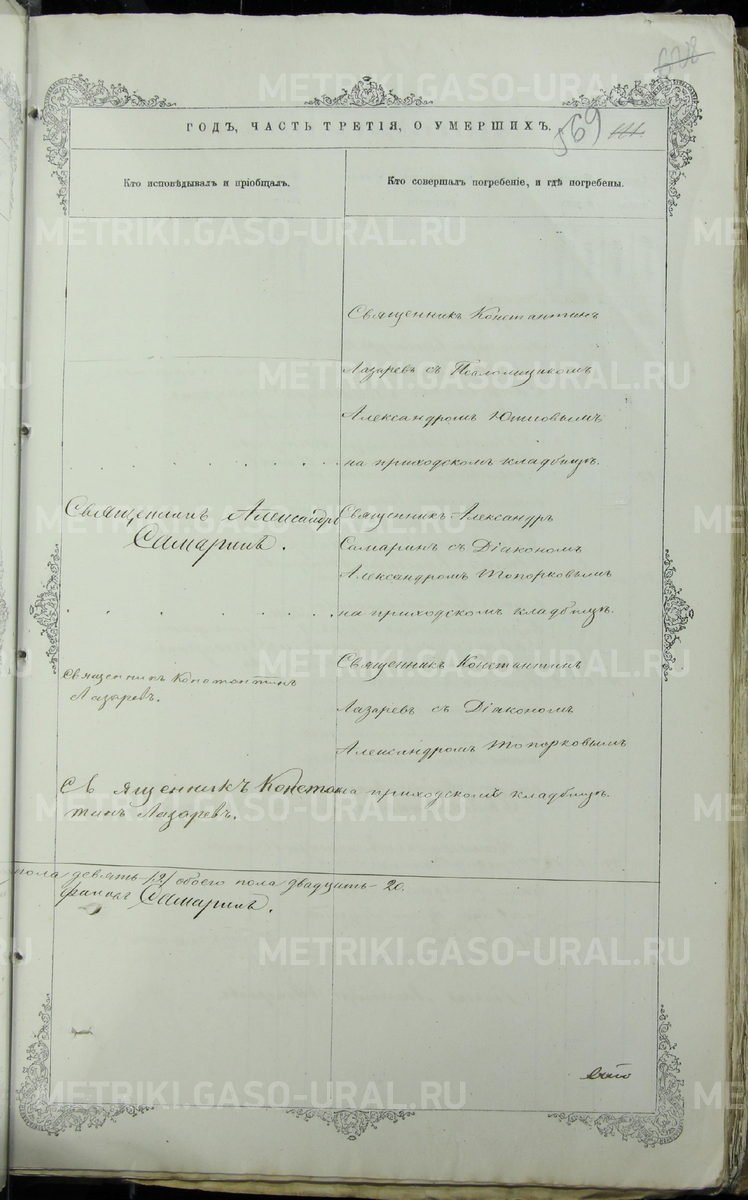 569
ГОДЪ, ЧАСТЬ ТРЕТІЯ, О УМЕРШИХЪ.
Кто исповѣдывалъ и пріобщалъ.
Кто совершалъ погребеніе, и гдѣ погребены.
Священникъ Константинъ
Лазаревъ съ Псаломщикомъ
Александромъ
на приходскомъ кладбищѣ.
Священникъ Александръ
Самаринъ.
Священникъ Александръ
Самаринъ съ Діакономъ
Александромъ Топорковымъ
на приходскомъ кладбищѣ.
Священникъ Константинъ
Лазаревъ.
Священникъ Константинъ
Лазаревъ съ Діакономъ
Александромъ Топорковымъ
на приходскомъ кладбищѣ.
Священникъ Констан
тинъ Лазаревъ.
пола девять /9/ обоего пола двадцать - 20.
Самаринъ.
METRIKI.GASO-URAL.RU